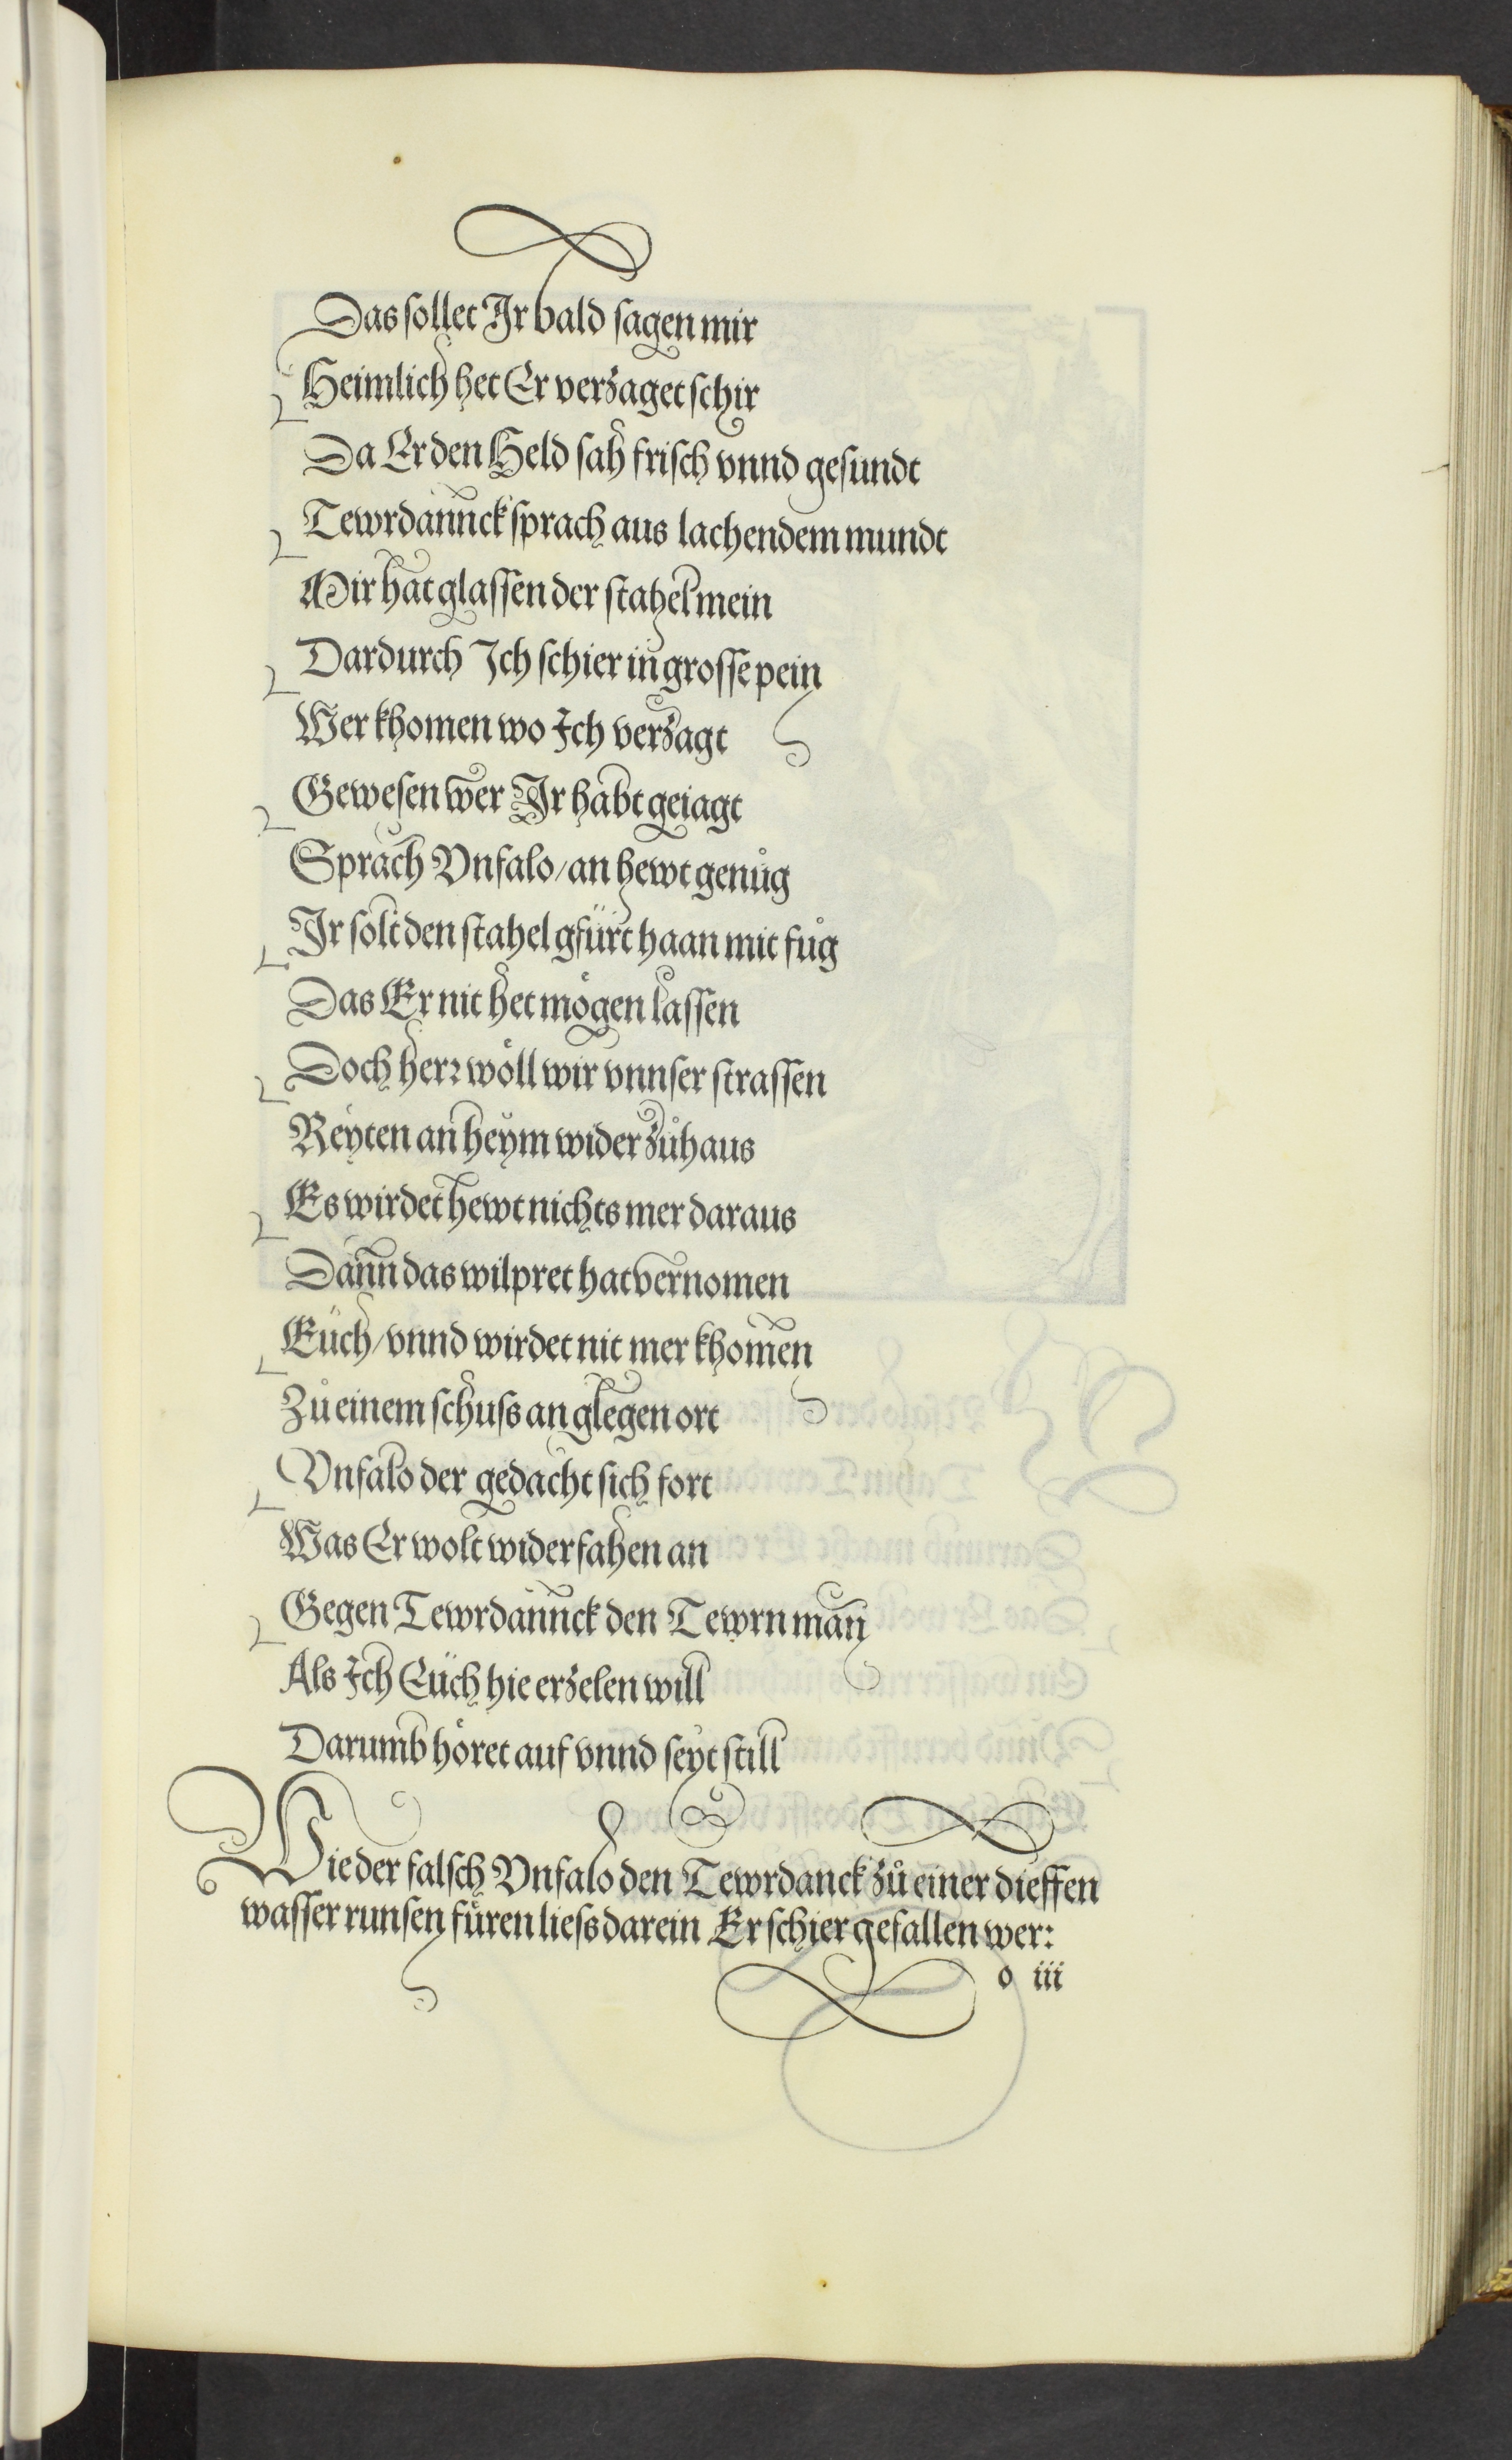 Das sollet Ir bald sagen mir
Heimlich het Er verzaget schir
Da Er den Held sah frisch vnnd gesundt
Tewrdannck sprach aus lachendem mundt
Mir hat glassen der stahel mein
Dardurch Ich schier in grosse pein
Wer khomen wo Ich verzagt
Gewesen wer Ir habt geiagt
Sprach Vnfalo/an hewt genůg
Ir solt den stahel gfürt haan mit fůg
Das Er nit het mögen lassen
Doch herr wöll wir vnnser strassen
Reyten anheym wider zůhaus
Es wirdet hewt nichts mer daraus
Dann das wilpret hat vernomen
Eüch/vnnd wirdet nit mer khomen
Zů einem schuss an glegen ort
Vnfalo der gedacht sich fort
Was Er wolt wider fahen an
Gegen Tewrdannck den Tewrn man
Als Ich Eüch hie erzelen will
Darumb höret auf vnnd seyt still
Wie der falsch Vnfalo den Tewrdanck zů einer dieffen
wasser runsen füren liess darein Er schier gefallen wer:
o iii